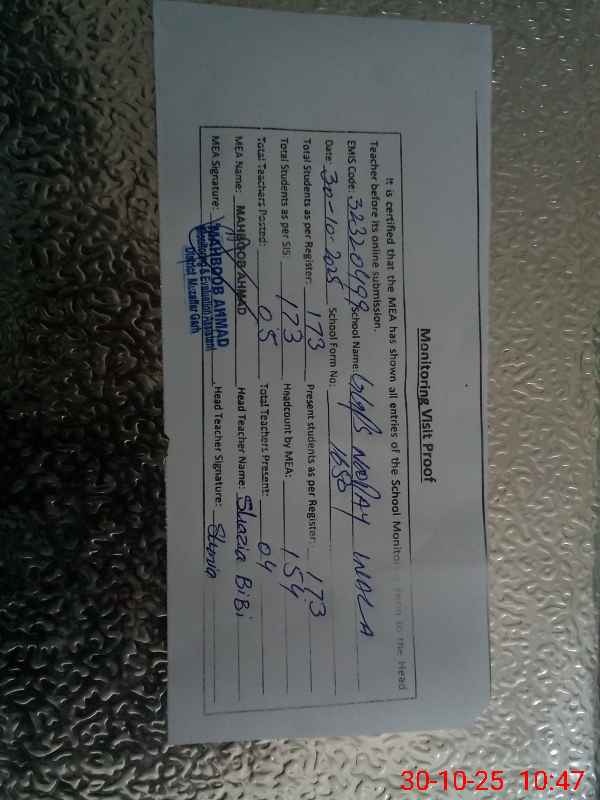 Monitoring Visit Proof
It is certified that the MEA has shown all entries of the School Monitoring Form to the Head
Teacher before its online submission.
EMIS Code: 32320499 School Name: GGPS NOORAY WALA
Date: 30-10-2025 School Form No: 1650
Total Students as per Register: 173 Present students as per Register: 173
Total Students as per SIS: 173 Headcount by MEA: 154
Total Teachers Posted: 05 Total Teachers Present: 04
MEA Name: MAHBOOB AHMAD Head Teacher Name: Shazia BiBi
MEA Signature: Head Teacher Signature:
MAHBOOB AHMAD
Monitoring & Evaluation Assistant
District Muzaffar Garh
30-10-25 10:47